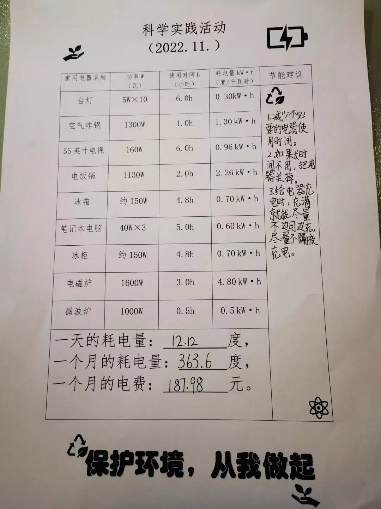 科学实践活动
(2022.11.)
家用电器名称 功率W(瓦) 使用时间h(小时) 耗电量kW·h(度/千瓦时) 节能建议
台灯 5W×10 6.0h 0.30kW·h
空气炸锅 1300W 1.0h 1.30kW·h
55英寸电视 160W 6.0h 0.96kW·h
电饭锅 1130W 2.0h 2.26kW·h
冰箱 约150W 4.8h 0.70kW·h
笔记本电脑 40W×3 5.0h 0.60kW·h
冰柜 约150W 4.8h 0.70kW·h
电磁炉 1600W 3.0h 4.80kW·h
微波炉 1000W 0.5h 0.5kW·h
1.减少不必
要的电器使
用时间。
2.如果长时
间不用,把电
器关掉。
3.给电器充
电时,充满
就拔,尽量
不边用边充,
尽量不过度
充电。
一天的耗电量:12.12度,
一个月的耗电量:363.6度,
一个月的电费:187.98元。
保护环境,从我做起